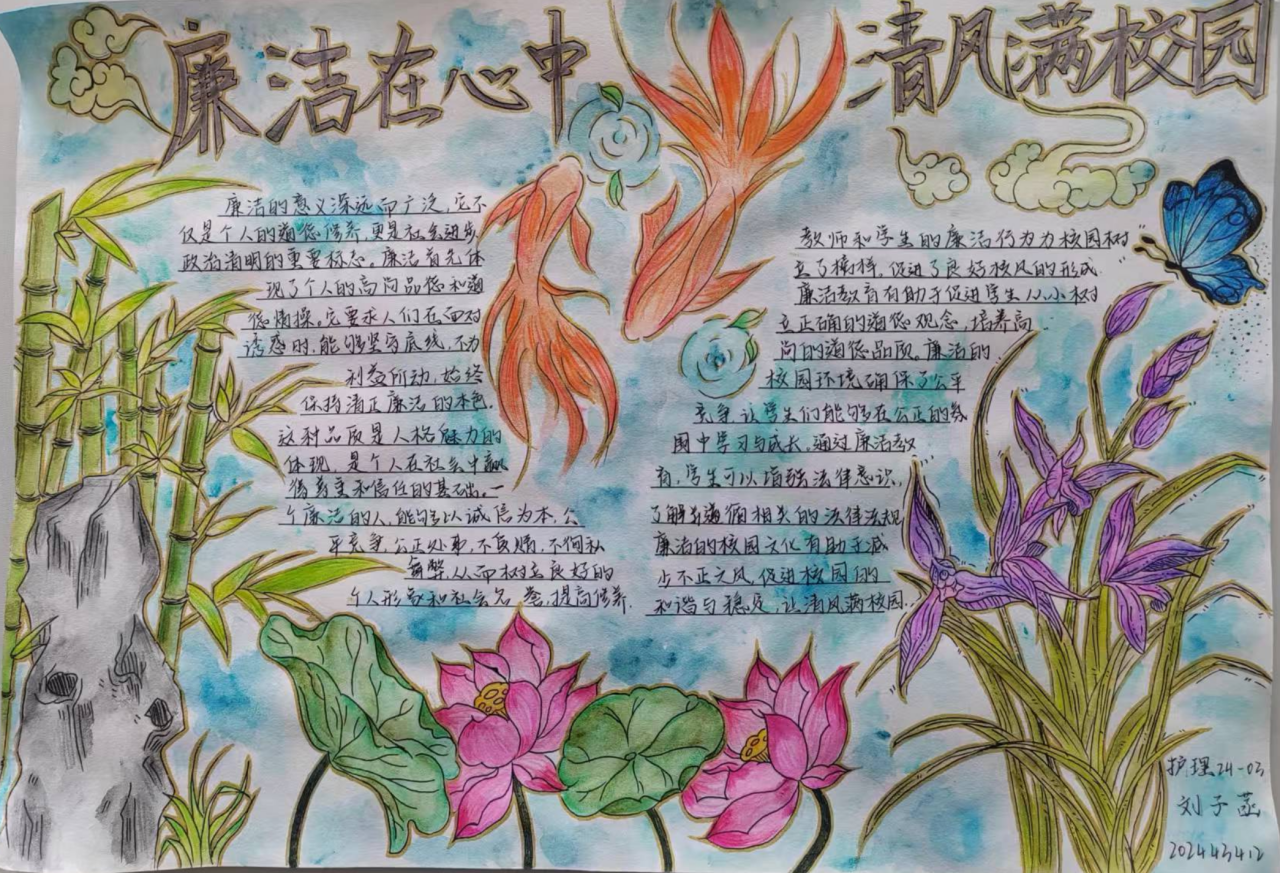 廉洁在心中
清风满校园
廉洁的意义深远而广泛,它不
仅是个人的道德修养,更是社会进步,
政治清明的重要标志。廉洁首先体
现了个人的高尚品德和道
德情操。它要求人们在面对
诱惑时,能够坚守底线,不为
利益所动,始终
保持清正廉洁的本色。
这种品质是人格魅力的
体现,是个人在社会中赢
得尊重和信任的基础。一
个廉洁的人,能够以诚信为本,公
平竞争,公正处事,不贪婪,不徇私
舞弊,从而树立良好的
个人形象和社会名誉,提高修养.
教师和学生的廉洁行为为校园树
立了榜样,促进了良好校风的形成.
廉洁教育有助于促进学生从小树
立正确的道德观念,培养高
尚的道德品质。廉洁的
校园环境确保了公平
竞争,让学生们能够在公正的氛
围中学习与成长,通过廉洁教
育,学生可以增强法律意识,
了解并遵循相关的法律法规
廉洁的校园文化有助于减
少不正之风,促进校园的
和谐与稳定,让清风满校园.
护理24-03
刘子菡
202443412